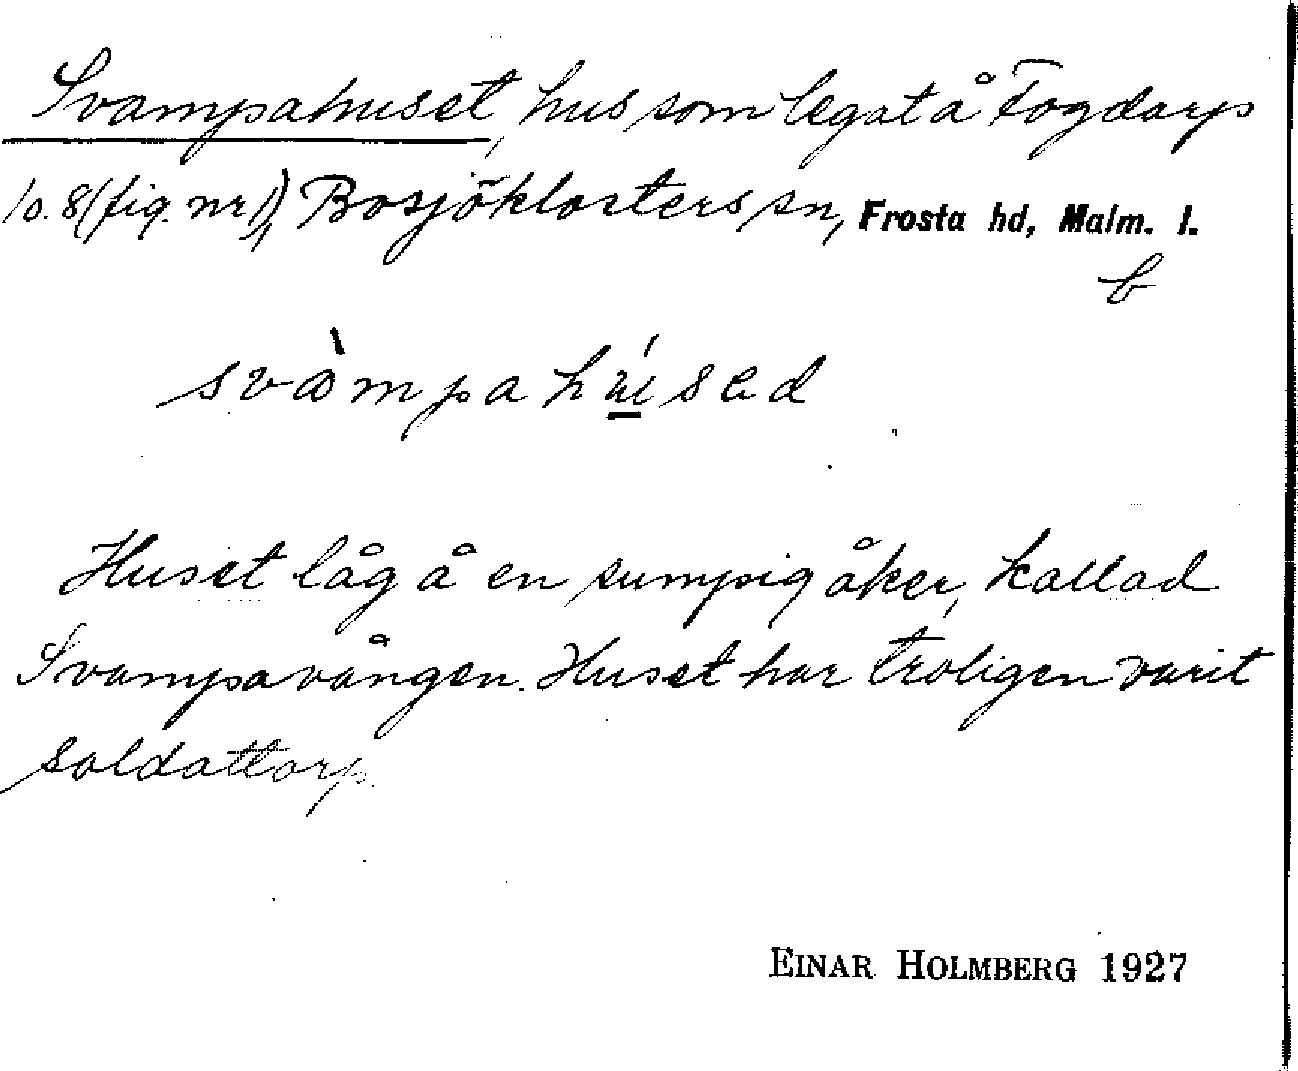 Svampahuset, hus som legat å Fogdarps
lo. 8 (fig. nr 1), Bosjöklosters sn, Frosta hd, Malm. l.
b
svàmpahúsed
Huset låg å en sumpig åker, kallad
Svampavången. Huset har troligen varit
soldattorp.
EINAR HOLMBERG 1927